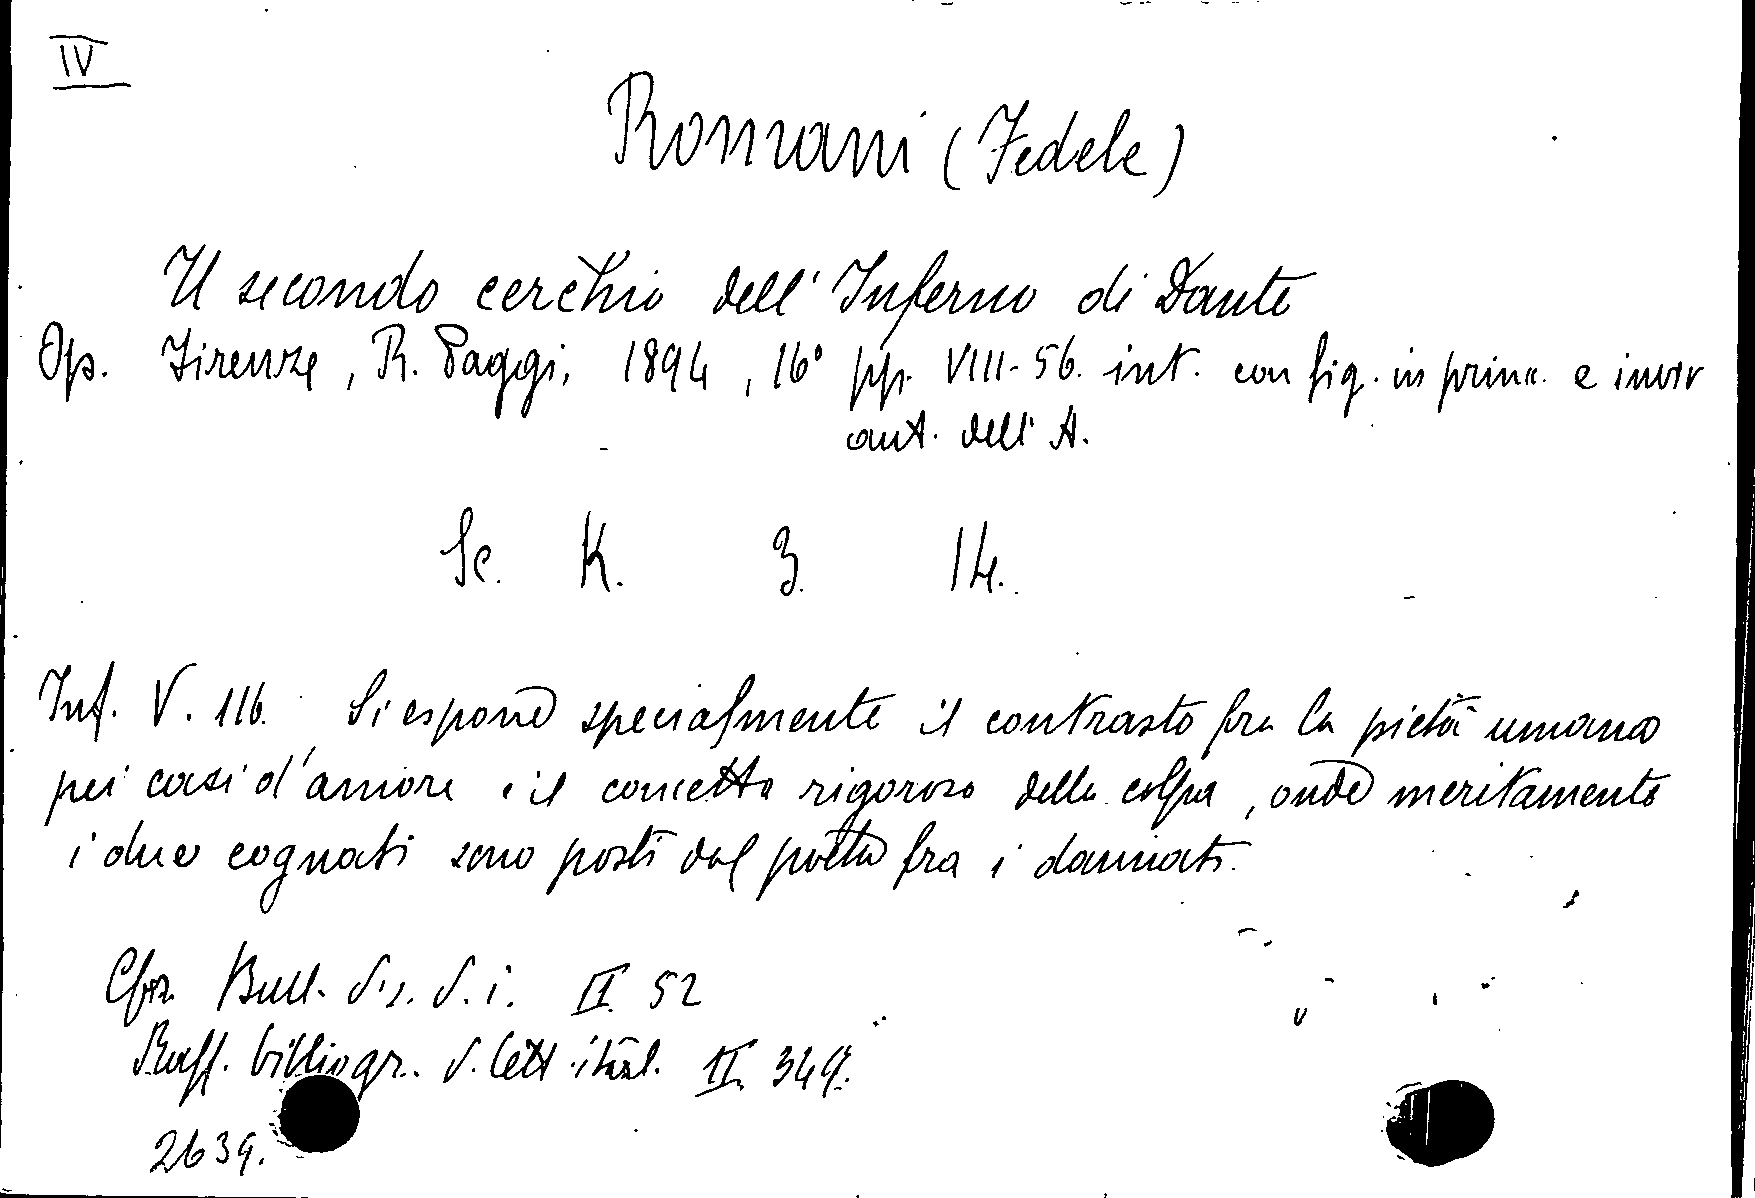 IV
Romani (Fedele)
Il secondo cerchio dell'Inferno di Dante
Op. Firenze, R. Paggi, 1894, 16° pp. VIII-56. int. con fig. in princ. e invio
aut. dell'A.
Sc. K. 3. 14.
Inf. V. 116. Si espone specialmente il contrasto fra la pietà umana
pei casi d'amore e il concetto rigoroso della colpa, onde meritamente
i due cognati sono posti dal poeta fra i dannati.
Cfr. Bull. d. i. II 52
Rass. bibliogr. d. lett. ital. II 349.
2639.